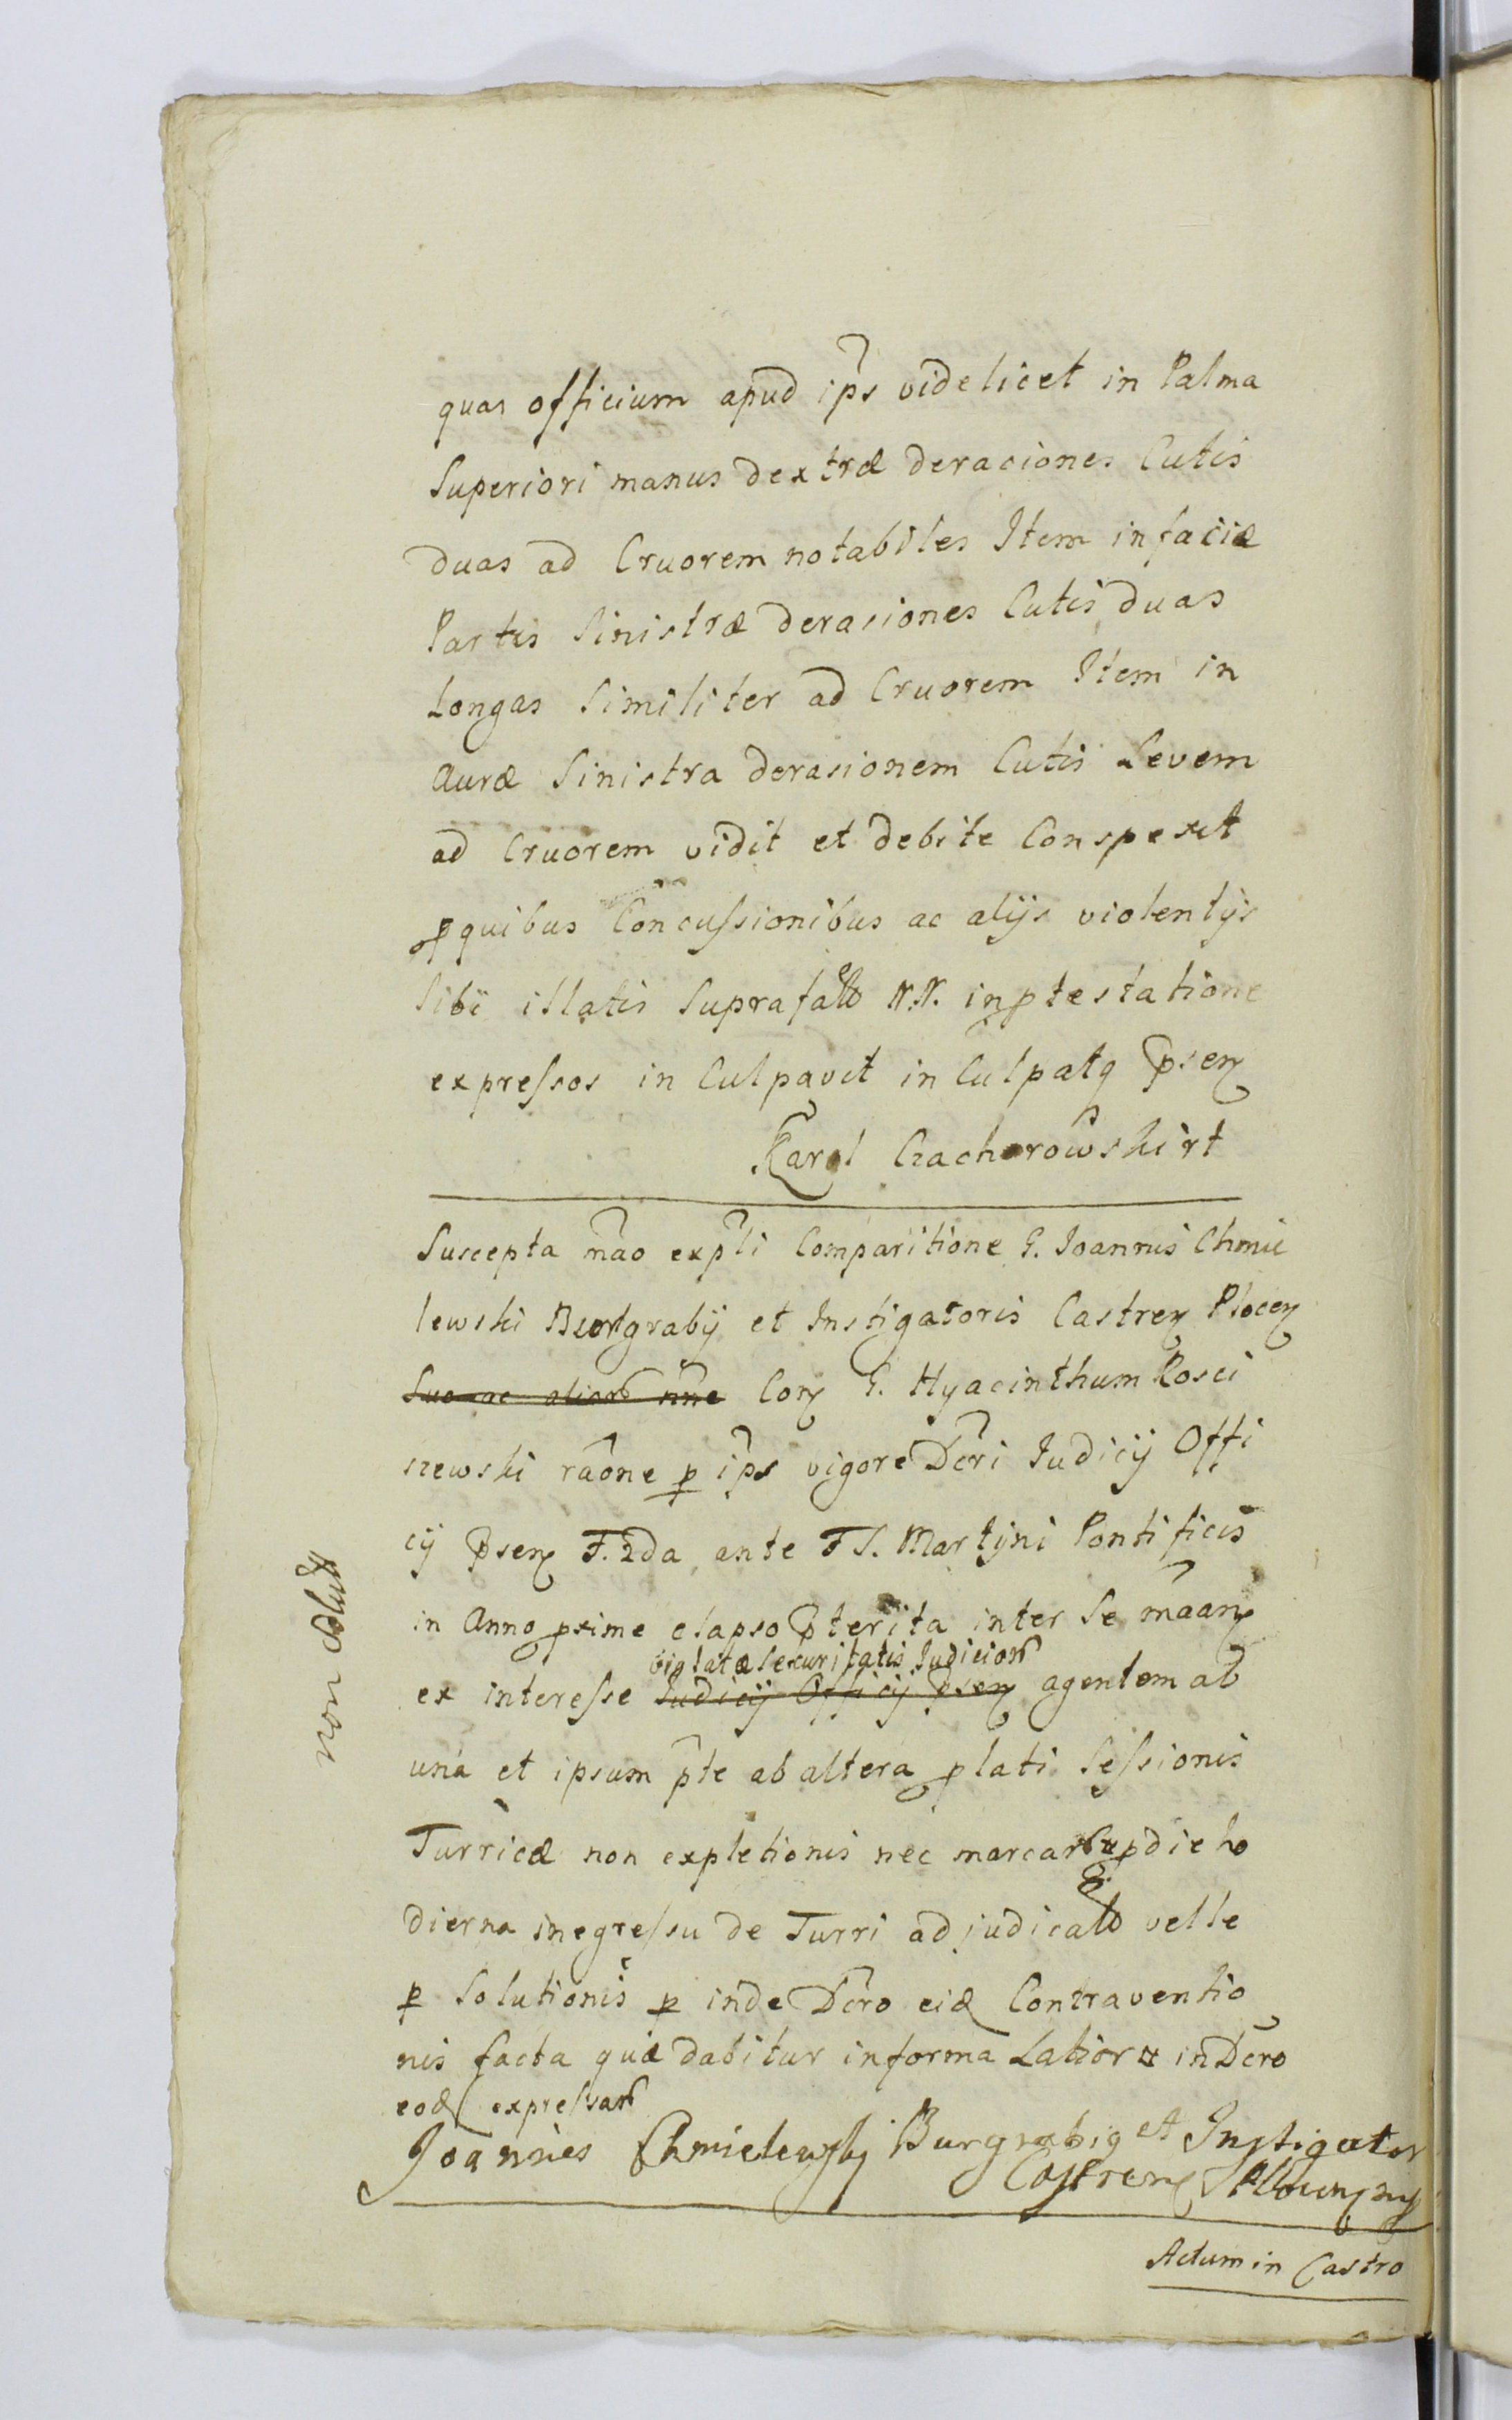 quas officium apud ips videlicet in Palma
Superiori manus dextræ deraciones Cutis
duas ad Cruorem notabiles Item in faciæ
Partis Sinistræ derasiones Cutis duas
Longas Similiter ad Cruorem Item in
Auræ Sinistra derasionem Cutis Levem
ad Cruorem vidit et debite Conspexit
quibus Concussionibus ac alijs violentijs
Sibi illatis N.N. in ptestatione
expressos in Culpavit in Culpatq psen
Karol Czachorowski rt
Suscepta mao expli Comparitione G. Joannis Chmie
lewski Burgrabij et Instigatoris Castren Plocen
Suo ac alior nne Con G. Hyacinthum Rosci
szewski raone p ips vigore Dcri Judicij Offi
cij psen F. 2da ante F S. Martyni Pontificis
in Anno pxime elapso pterita inter Se maan
violatæ Securitatis Judicior
ex interesse Judicij Officij psen agentem ab
una et ipsum pte ab altera plati Sessionis
Turricæ non expletionis nec marcar p die ho
dierna in egressu de Turri adjudicat velle
p Solutionis p inde Dcro eid Contraventio
nis facta quæ dabitur in forma Latior in Dcro
eod expressar
Joannes Chmielewski Burgrabig et Instigator
Castren
Actum in Castro
non Solut